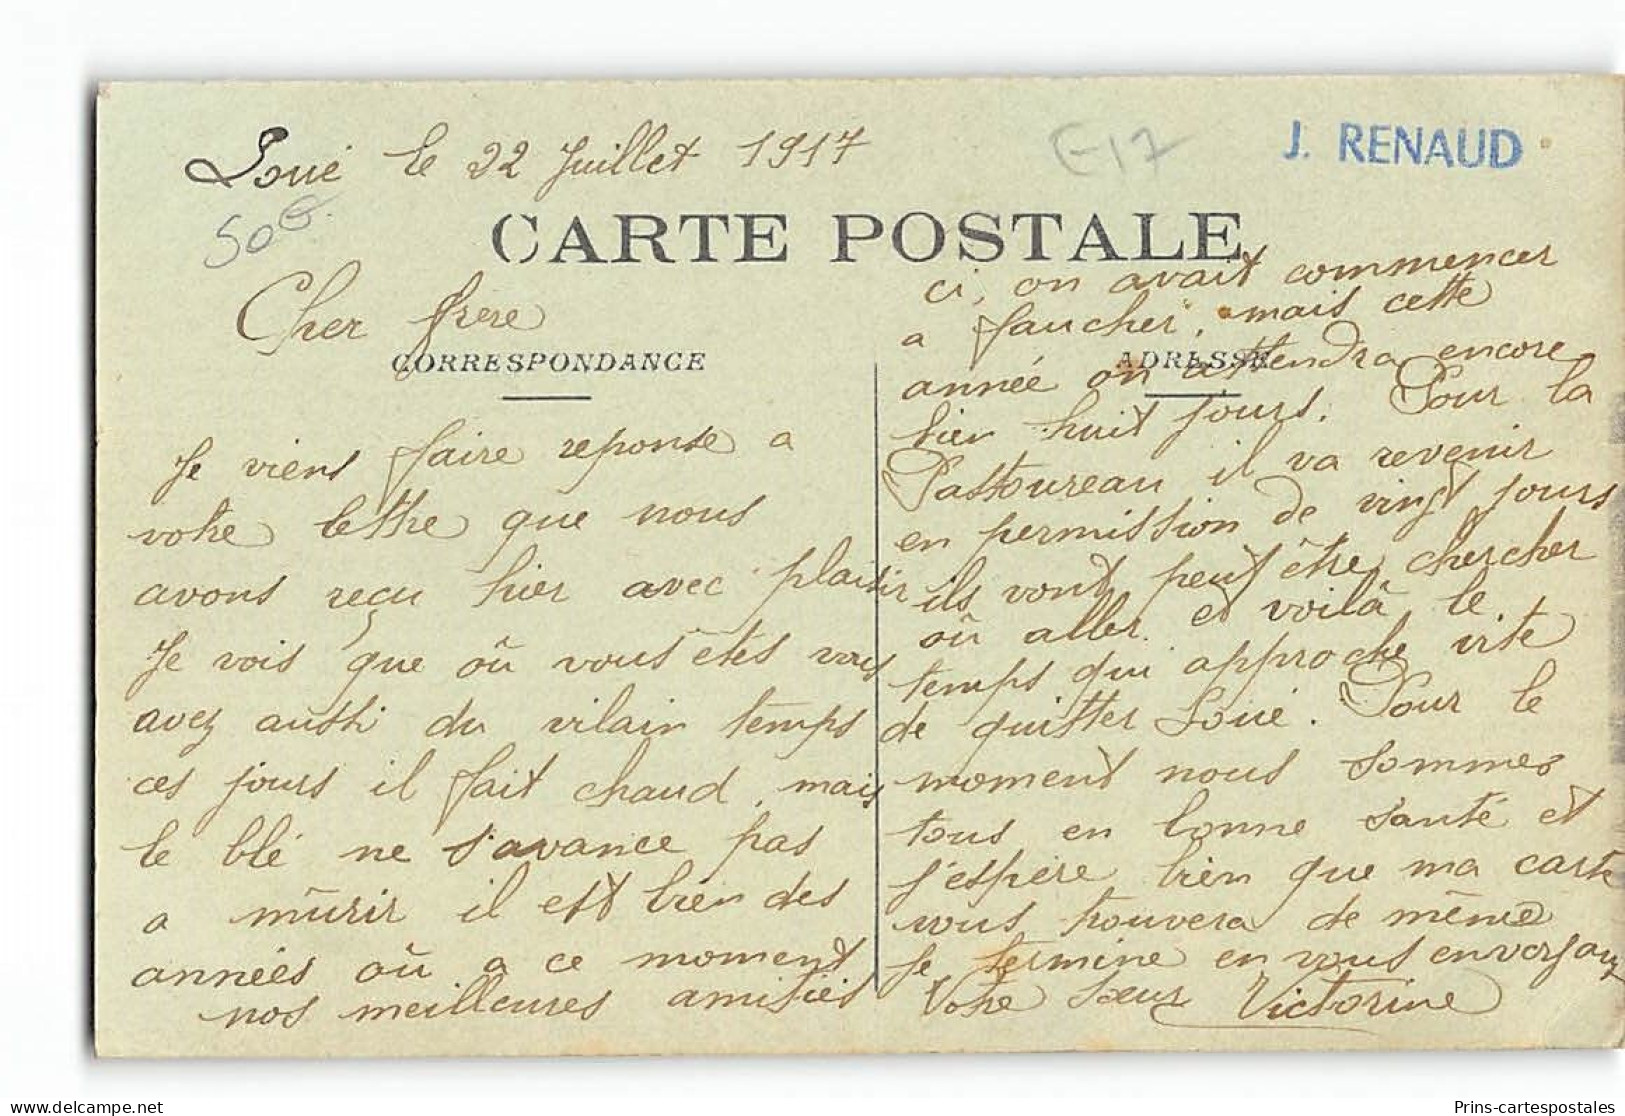 Loué le 22 Juillet 1917
E17
J. RENAUD
50
CARTE POSTALE
Cher frere
CORRESPONDANCE
Je viens faire reponse a
votre lettre que nous
avons reçu hier avec plaisir
Je vois que où vous etes vous
avez aussi du vilain temps
ces jours il fait chaud, mais
le blé ne s'avance pas
a mûrir il est bien des
années où a ce moment
nos meilleures amitiés
ADRESSE
ci, on avait commencer
a faucher, mais cette
année on attendra encore
bien huit jours. Pour la
Pastoureau il va revenir
en permission de vingt jours
ils vont peut être chercher
où aller. et voilà le
temps qui approche vite
de quitter Loué. Pour le
moment nous sommes
tous en bonne santé et
j'espère bien que ma carte
vous trouvera de même
Je termine en vous envoyant
Votre sœur Victorine
delcampe.net
Prins-cartespostales